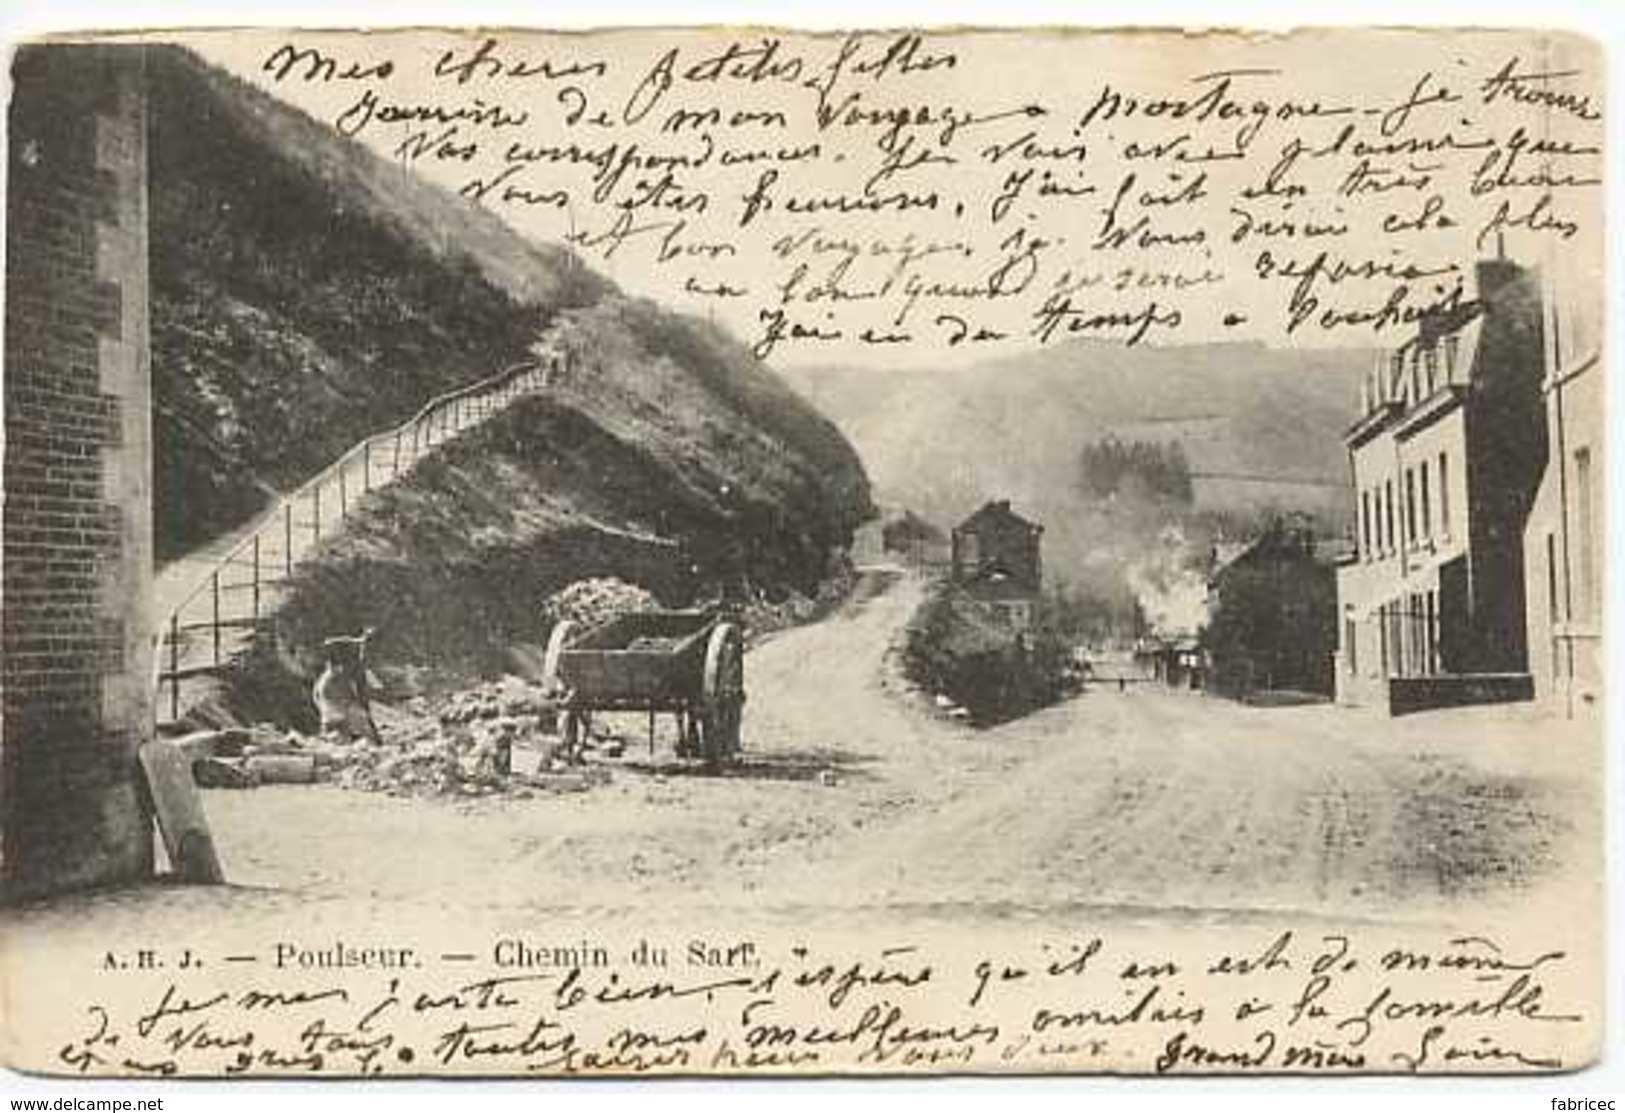 Mes cheres petites filles
J'arrive de mon voyage a Mortagne. je trouve
vos correspondances. Je vois avec plaisir que
vous êtes heureuses, J'ai fait un très beau
et bon voyage, je vous dirai cela plus
au long quand je serai
J'ai eu du temps a souhait
A. H. J. — Poulseur. — Chemin du Sart.
je me porte bien, j'espère qu'il en est de même
de vous tous toutes mes meilleures amitiés à la famille
et un gros pour vous deux. Grand mère
delcampe.net
fabricec